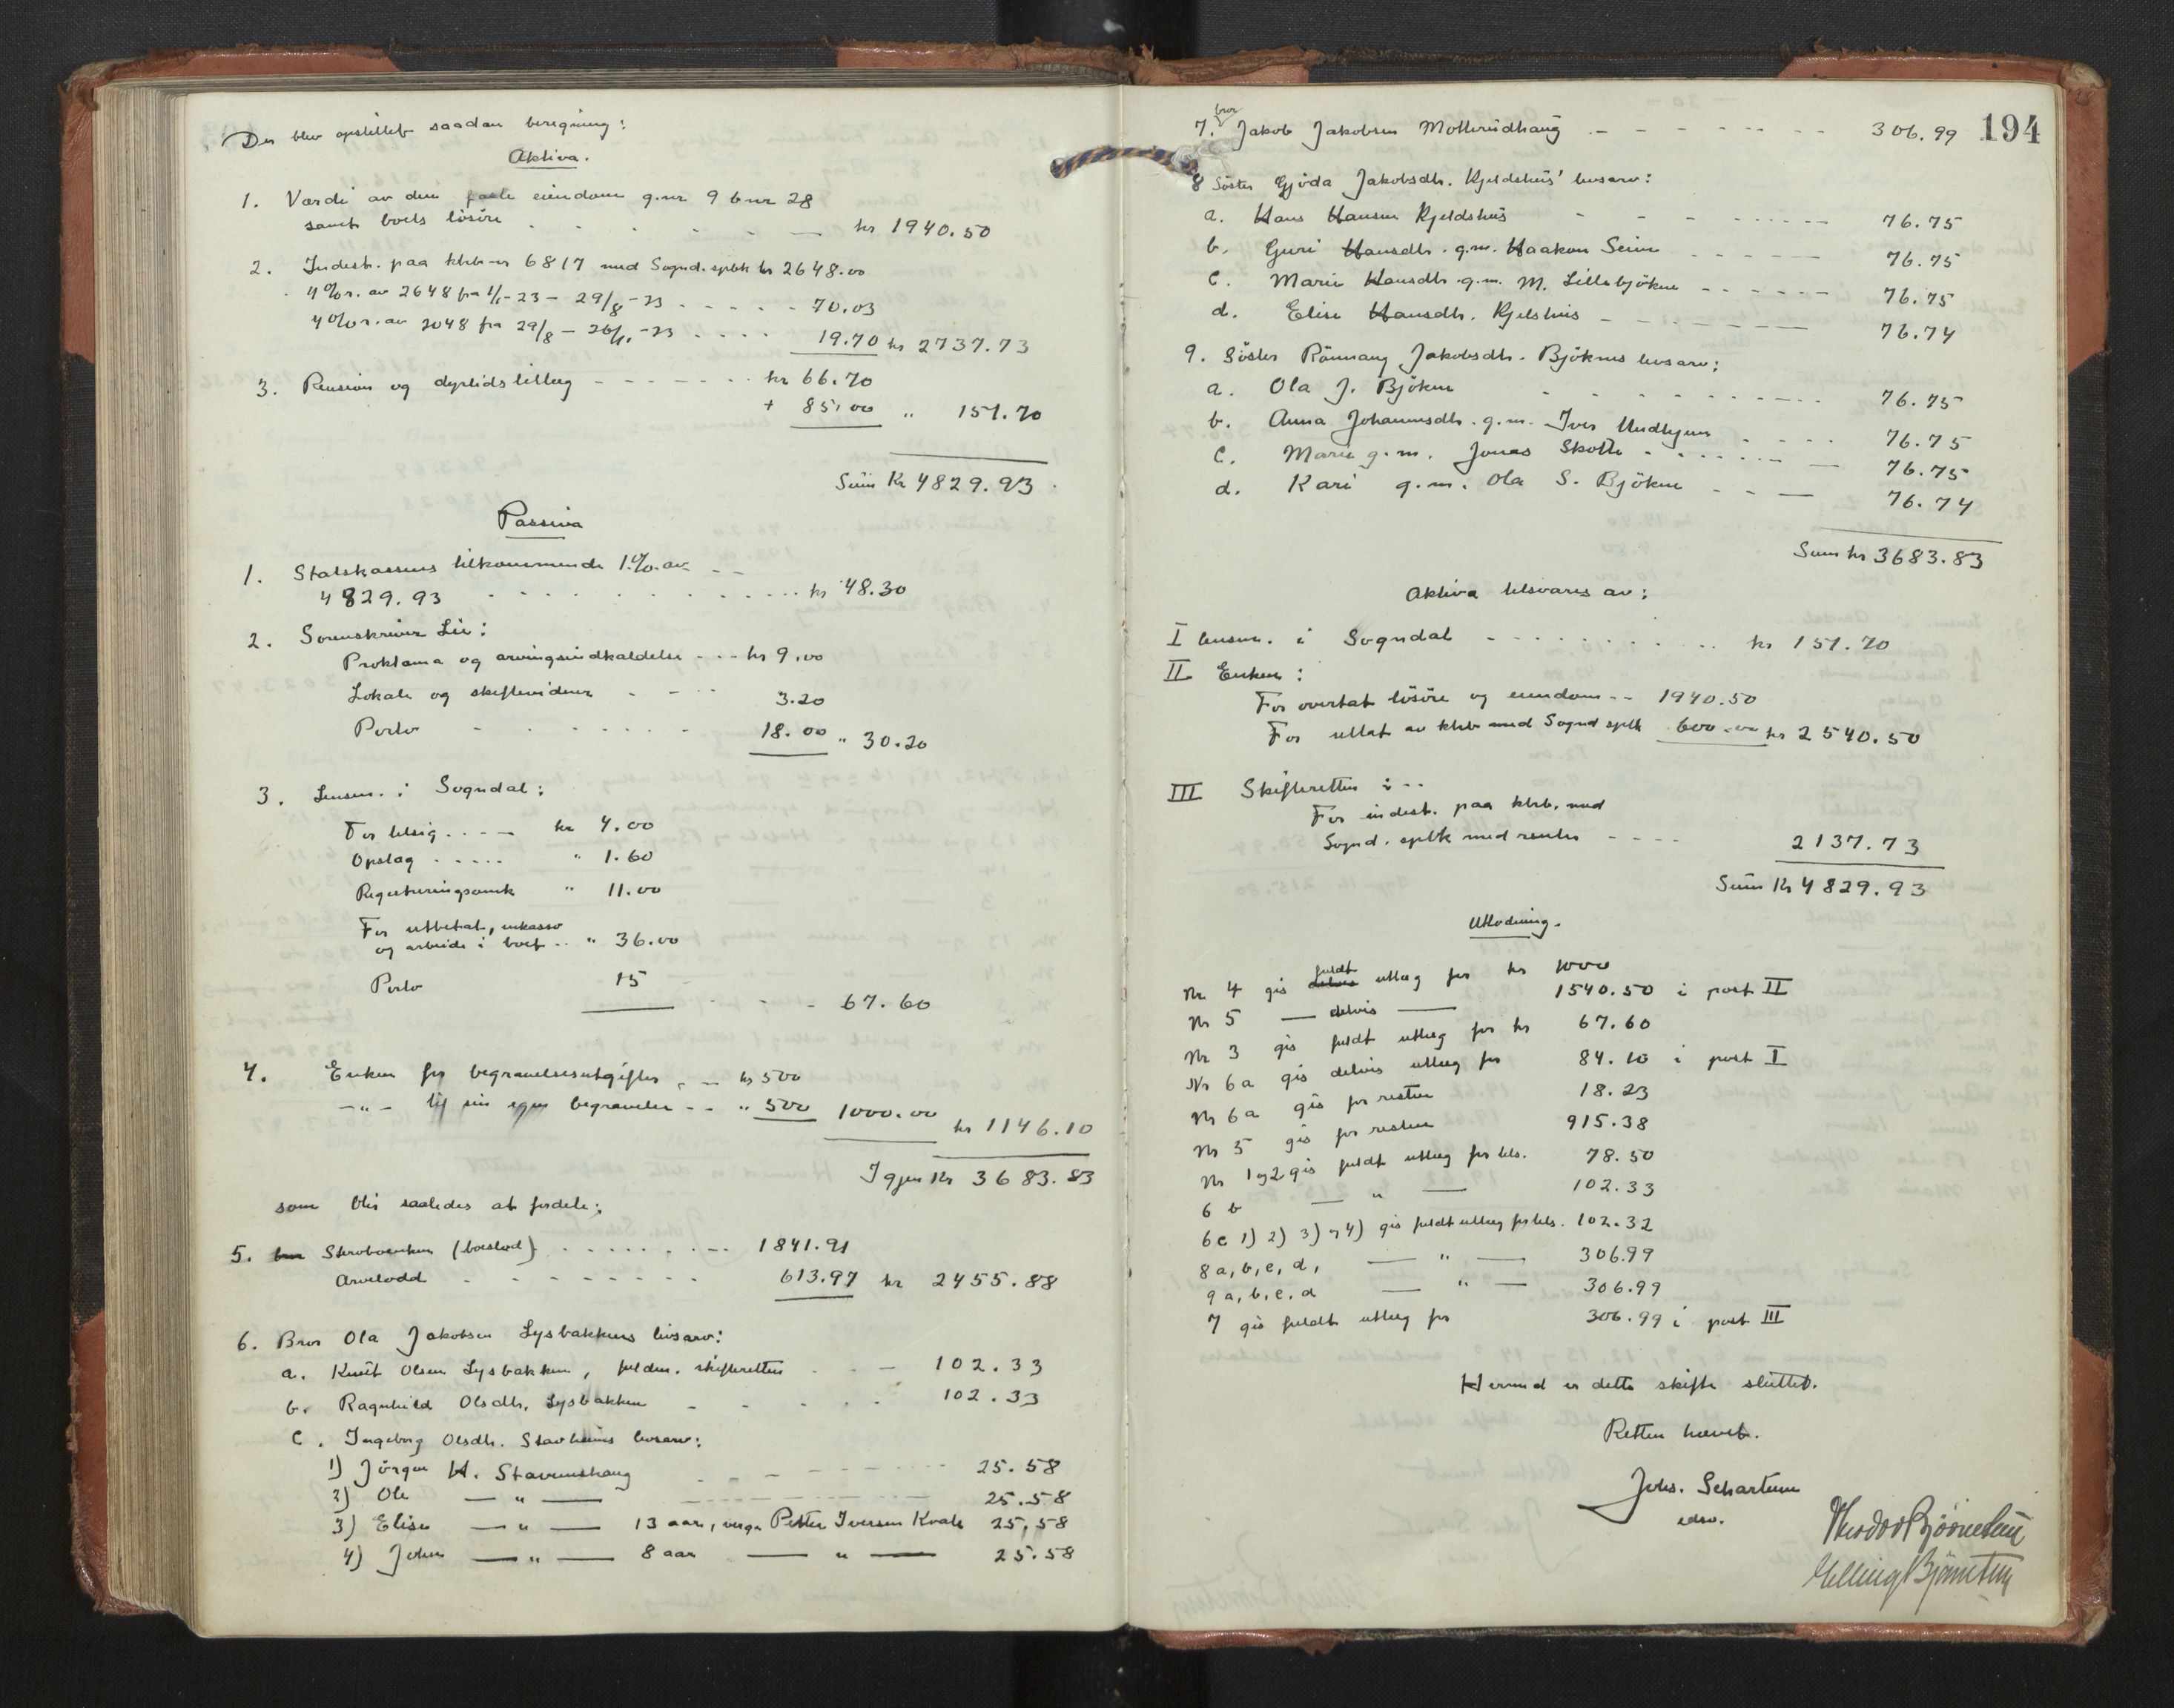 Der blev opstillet saadan beregning:
Aktiva.
1. Værdi av den faste eiendom g.nr 9 b nr 28
samt boets lösöre . . . . . — kr 1940.50
2. Indest. paa kbb nr 6817 med Sognd. spbk kr 2648.00
4% r. av 2648 fra 1/1-23 - 29/8-23 . - - - - 70.03
4% r. av 2048 fra 29/8 - 26/11-23 . . . . 19.70 kr 2737.73
3. Pension og dyrtidstillæg - - - - - - . . kr 66.70
+ 85.00 " 151.70
Sum Kr 4829.93
Passiva
1. Statskassens tilkommende 1% av - -
4829.93 . . . . . . . . . . kr 48.30
2. Sorenskriver Lie:
Proklama og arvingsindkaldelse - - - kr 9.00
Lokale og skiftevidner . - - . 3.20
Porto - . - . . . . - 18.00 " 30.20
3. Lensm. i Sogndal:
For tilsig. . - - — kr 4.00
Opslag . . . . . " 1.60
Registreringsomk " 11.00
For utbetal, inkasso
og arbeide i boet . . " 36.00
Porto 15
— - . - - 67.60
4. Enken for begravelsesutgifter . — kr 500
- " - til sin egen begravelse - - " 500 1000.00 kr 1146.10
Igjen Kr 3683.83
som blir saaledes at fordele:
5. Skroboenken (boeslod) . . . . . . . - - 1841.91
Arvelodd - - - - - - - . 613.97 kr 2455.88
6. Bror Ola Jakobsen Lysbakkens livsarv:
a. Knut Olsen Lysbakken, fuldm. skifteretten . . — 102.33
b. Ragnhild Olsdtr. Lysbakken - - . . . 102.33
c. Ingeborg Olsdtr. Stavheims livsarv:
1) Jörgen H. Stavumshaug . - - - - . . . . 25.58
2) Ole — " — - - - - - - - - 25.58
3) Elise — " — 13 aar, verge Petter Iversen Kvale 25.58
4) Johan — " — 8 aar — " — 25.58
194
7. bror Jakob Jakobsen Mollerudhaug . - - - - - - - 306.99
8 Söster Gjöda Jakobsdtr. Kjeldshus' livsarv:
a. Hans Hansen Kjeldshus - - - - - . . . - - 76.75
b. Guri Hansdtr. g.m. Haakon Seim - - - - - - 76.75
c. Marie Hansdtr. g.m. M. Lillebjökne - - . - - - 76.75
d. Elise Hansdtr. Kjelshus - - - - - - - 76.74
9. Söster Rönnaug Jakobsdtr. Bjöknes livsarv:
a. Ola J. Bjökne . . - . . - - - . . 76.75
b. Anna Johannesdtr. g.m. Iver . . . . 76.75
c. Marie g.m. Jonas Skotte . . . . . . - — 76.75
d. Kari g.m. Ola S. Bjökne - - — 76.74
Sum kr 3683.83
Aktiva tilsvares av:
I lensm. i Sogndal - . . . . . . . . . . kr 151.70
II Enken:
For overtat lösöre og eiendom - - 1940.50
For uttat av kbb med Sognd spbk 600.00 kr 2540.50
III Skifteretten i - -
For indest. paa kbb. med
Sognd. spbk med renter - - - - 2137.73
Sum Kr 4829.93
Utlodning.
Nr. 4 gis delvis fuldt utlæg for kr 1000
Nr 5 — delvis — 1540.50 i post II
Nr 3 gis fuldt utlæg for kr 67.60
Nr 6a gis delvis utlæg for 84.10 i post I
Nr 6a gis for resten 18.23
Nr 5 gis for resten 915.38
Nr 1 og 2 gis fuldt utlæg for tils. 78.50
6 b — " — 102.33
6c 1) 2) 3) og 4) gis fuldt utlæg for tils. 102.32
8 a, b, c, d, — " — 306.99
9 a, b, c, d — " — 306.99
7 gis fuldt utlæg for 306.99 i post III
Hermed er dette skifte sluttet.
Retten hævet.
Johs. Schartum
edsv.
Theodor Bjørnetun
Elling Bjørnetun